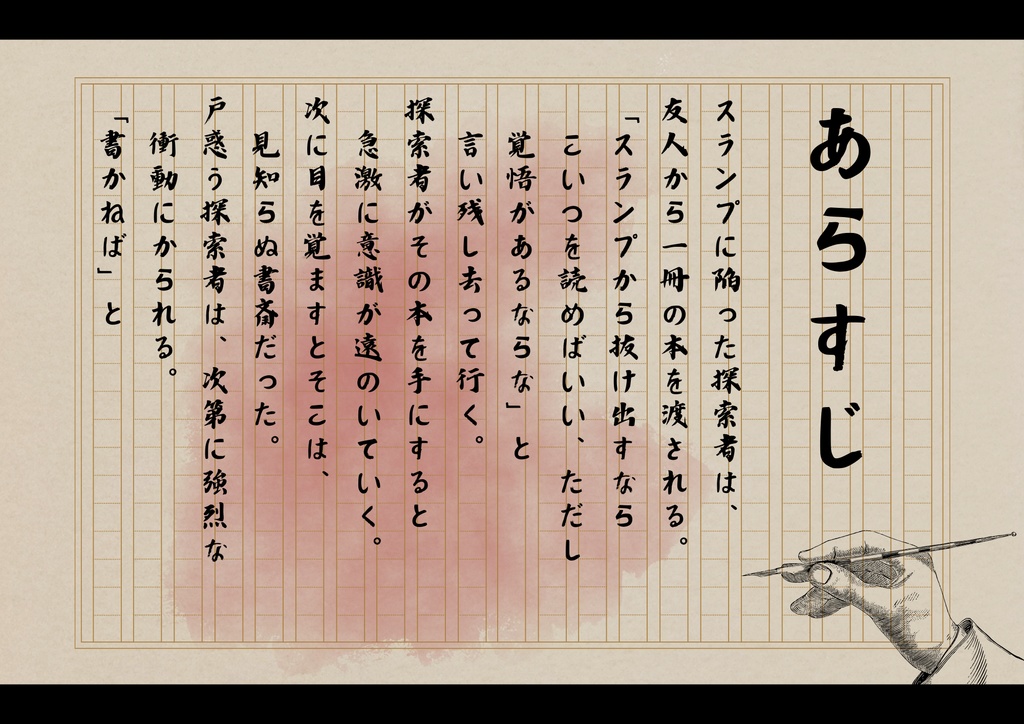 あらすじ
スランプに陥った探索者は、
友人から一冊の本を渡される。
「スランプから抜け出すなら
こいつを読めばいい、ただし
覚悟があるならな」と
言い残し去って行く。
探索者がその本を手にすると
急激に意識が遠のいていく。
次に目を覚ますとそこは、
見知らぬ書斎だった。
戸惑う探索者は、次第に強烈な
衝動にかられる。
「書かねば」と